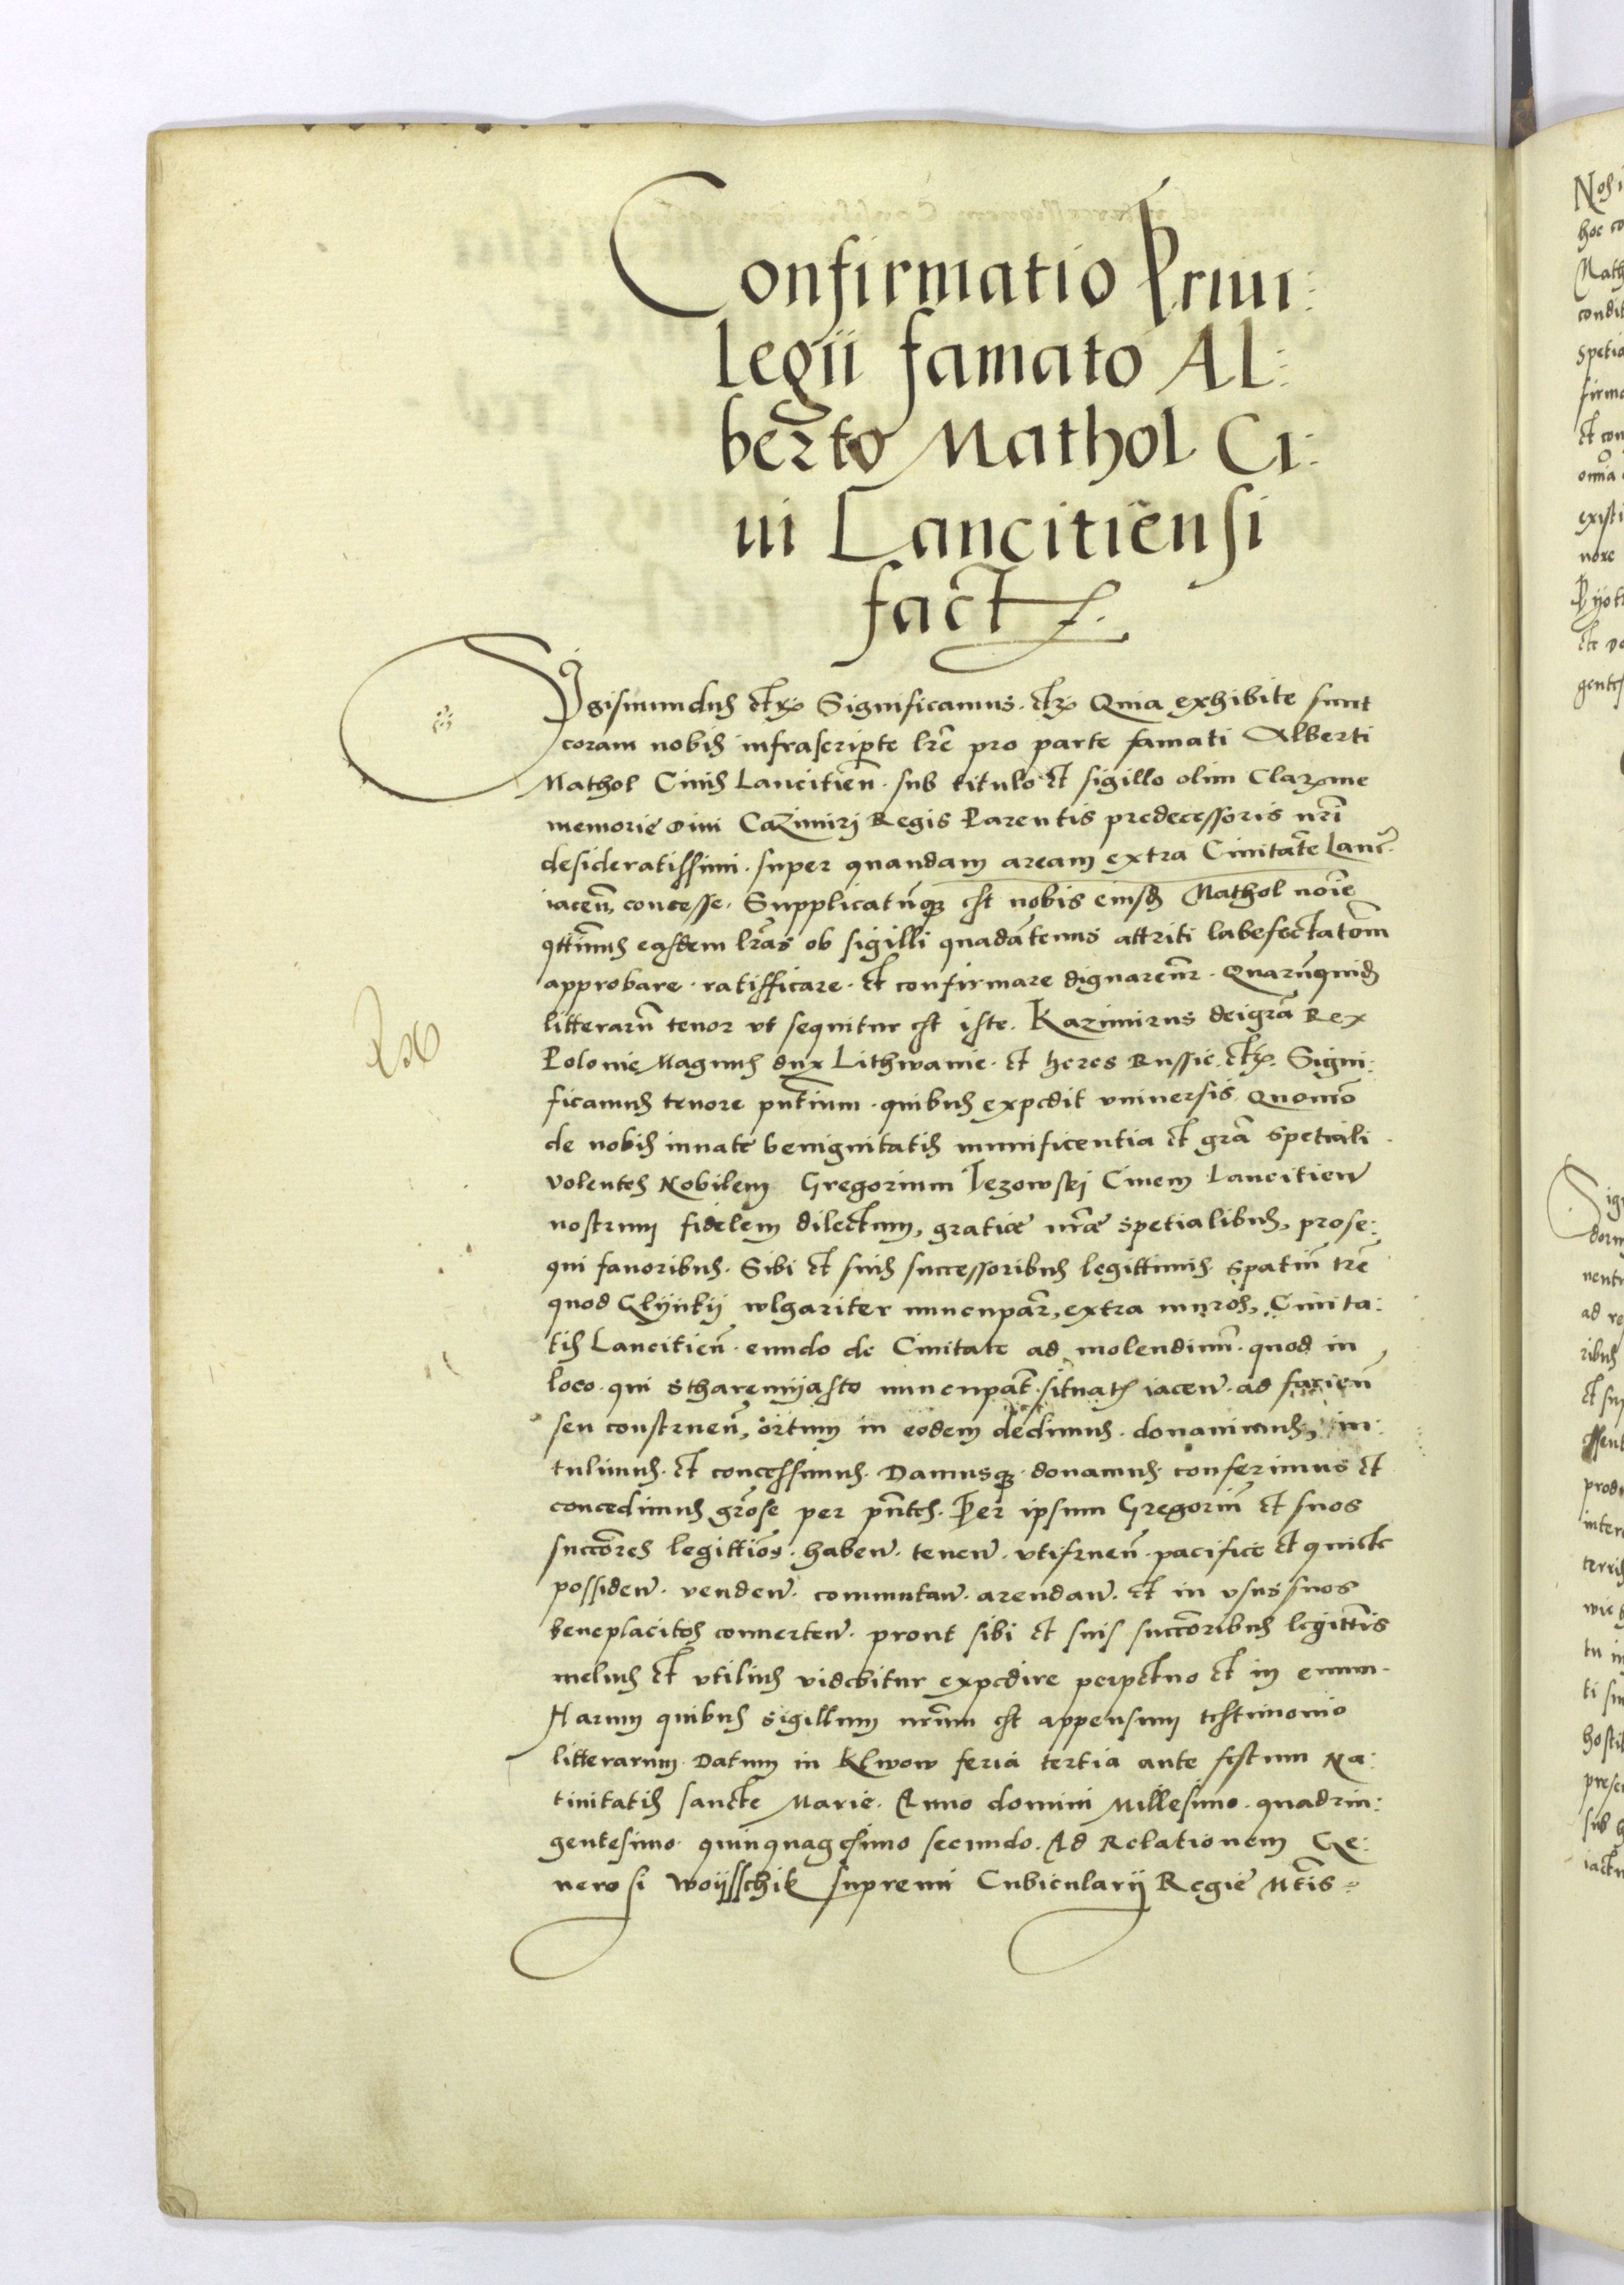 Confirmatio Priui:
legii famato Al:
berto Mathol Ci:
ui Lancitiensi
fact
Sigismundus etc. Significamus. etc. Quia exhibite sunt
coram nobis infrascripte lre pro parte famati Alberti
Mathol Ciuis Lancitien. sub titulo et sigillo olim Clarxme
memorie diui Cazimirj Regis Parentis predecessoris nri
desideratissimi. super quandam aream extra Ciuitate Lanc.
iacen, concesse. Supplicatumque est nobis eiusdem Mathol noie
qttimus easdem lras ob sigilli quadatenus attriti labefectatom
approbare. ratifficare. et confirmare dignaremr. Quarumquidem
litterarum tenor vt sequitur est iste. Kazimirus dei gra Rex
Polonie Magnus dux Lithwanie. et heres Russie. etc. Signi:
ficamus tenore pntium. quibus expedit vniuersis. Quomo
de nobis innate benignitatis munificentia et gra spetiali.
volentes Nobilem Gregorium Jezowskj Ciuem Lancitien
nostrum fidelem dilectum, gratiae nrae spetialibus, prose:
qui fauoribus. Sibi et suis successoribus legittimis. spatiu tre
quod Glijnkij wlgariter nuncupatur, extra muros, Ciuita:
tis Lancitien. eundo de Ciuitate ad molendinu. quod in
loco. qui stharemijasto nuncupat. situatum iacen. ad facien
seu construen, ortum in eodem dedimus. donauimus, in:
tulimus. et concessimus. Damusque. donamus. conferimus et
concedimus grose per pntes. Per ipsum Gregoriu et suos
succores legittios. haben. tenen. vtifruen. pacifice et quiete
possiden. venden. commutan. arendan. et in vsus suos
beneplacitos conuerten. prout sibi et suis succoribus legittis
melius et vtilius videbitur expedire perpetuo et in euum.
Harum quibus sigillum nrum est appensum testimonio
litterarum. Datum in Klwow feria tertia ante festum Na:
tiuitatis sancte Marie. Anno domini Millesimo. quadrin:
gentesimo. quinquagesimo secundo. Ad Relationem Ge:
nerosi Woijsschik supremi Cubicularij Regie Mtis